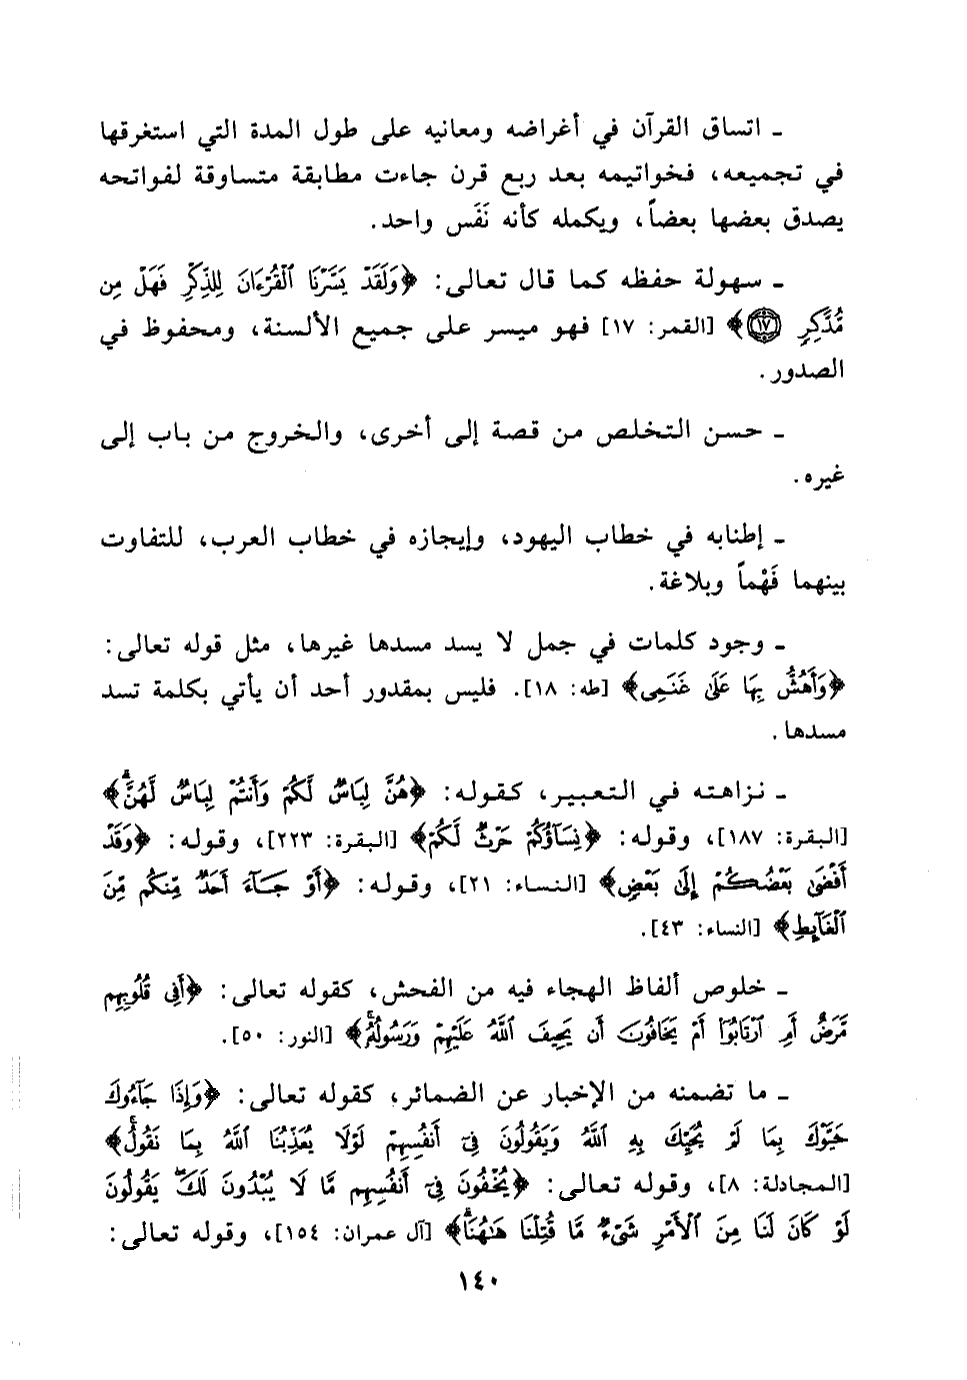 ـ اتساق القرآن في أغراضه ومعانيه على طول المدة التي استغرقها
في تجميعه، فخواتيمه بعد ربع قرن جاءت مطابقة متساوقة لفواتحه
يصدق بعضها بعضاً، ويكمله كأنه نَفَس واحد.
ـ سهولة حفظه كما قال تعالى: ﴿وَلَقَدْ يَسَّرْنَا ٱلْقُرْءَانَ لِلذِّكْرِ فَهَلْ مِن
مُّدَّكِرٍ ١٧﴾ [القمر: ١٧] فهو ميسر على جميع الألسنة، ومحفوظ في
الصدور.
ـ حسن التخلص من قصة إلى أخرى، والخروج من باب إلى
غيره.
ـ إطنابه في خطاب اليهود، وإيجازه في خطاب العرب، للتفاوت
بينهما فَهْماً وبلاغة.
ـ وجود كلمات في جمل لا يسد مسدها غيرها، مثل قوله تعالى:
﴿وَأَهُشُّ بِهَا عَلَىٰ غَنَمِى﴾ [طه: ١٨]. فليس بمقدور أحد أن يأتي بكلمة تسد
مسدها.
ـ نزاهته في التعبير، كقوله: ﴿هُنَّ لِبَاسٌ لَّكُمْ وَأَنتُمْ لِبَاسٌ لَّهُنَّۗ﴾
[البقرة: ١٨٧]، وقوله: ﴿نِسَآؤُكُمْ حَرْثٌ لَّكُمْ﴾ [البقرة: ٢٢٣]، وقوله: ﴿وَقَدْ
أَفْضَىٰ بَعْضُكُمْ إِلَىٰ بَعْضٍ﴾ [النساء: ٢١]، وقوله: ﴿أَوْ جَآءَ أَحَدٌ مِّنكُم مِّنَ
ٱلْغَآئِطِ﴾ [النساء: ٤٣].
ـ خلوص ألفاظ الهجاء فيه من الفحش، كقوله تعالى: ﴿أَفِى قُلُوبِهِم
مَّرَضٌ أَمِ ٱرْتَابُوٓا۟ أَمْ يَخَافُونَ أَن يَحِيفَ ٱللَّهُ عَلَيْهِمْ وَرَسُولُهُۥۚ﴾ [النور: ٥٠].
ـ ما تضمنه من الإخبار عن الضمائر، كقوله تعالى: ﴿وَإِذَا جَآءُوكَ
حَيَّوْكَ بِمَا لَمْ يُحَيِّكَ بِهِ ٱللَّهُ وَيَقُولُونَ فِىٓ أَنفُسِهِمْ لَوْلَا يُعَذِّبُنَا ٱللَّهُ بِمَا نَقُولُۚ﴾
[المجادلة: ٨]، وقوله تعالى: ﴿يُخْفُونَ فِىٓ أَنفُسِهِم مَّا لَا يُبْدُونَ لَكَۖ يَقُولُونَ
لَوْ كَانَ لَنَا مِنَ ٱلْأَمْرِ شَىْءٌ مَّا قُتِلْنَا هَـٰهُنَاۗ﴾ [آل عمران: ١٥٤]، وقوله تعالى:
١٤٠